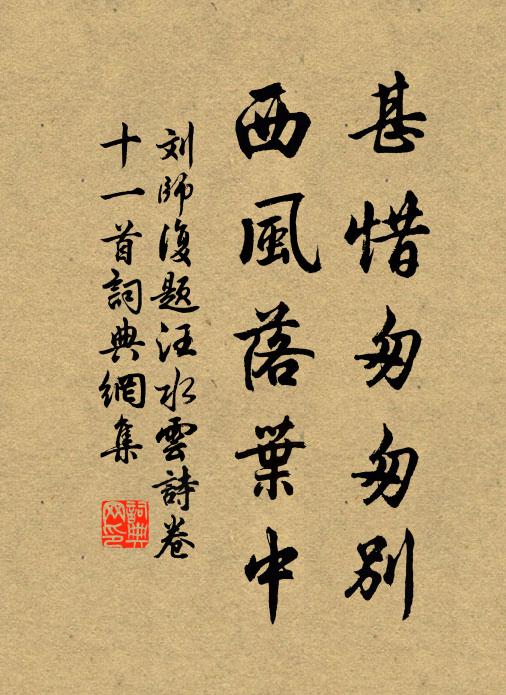 甚惜匆匆別
西風落葉中
刘師復題汪水雲詩卷
十一首詞典網集
詞典
网印